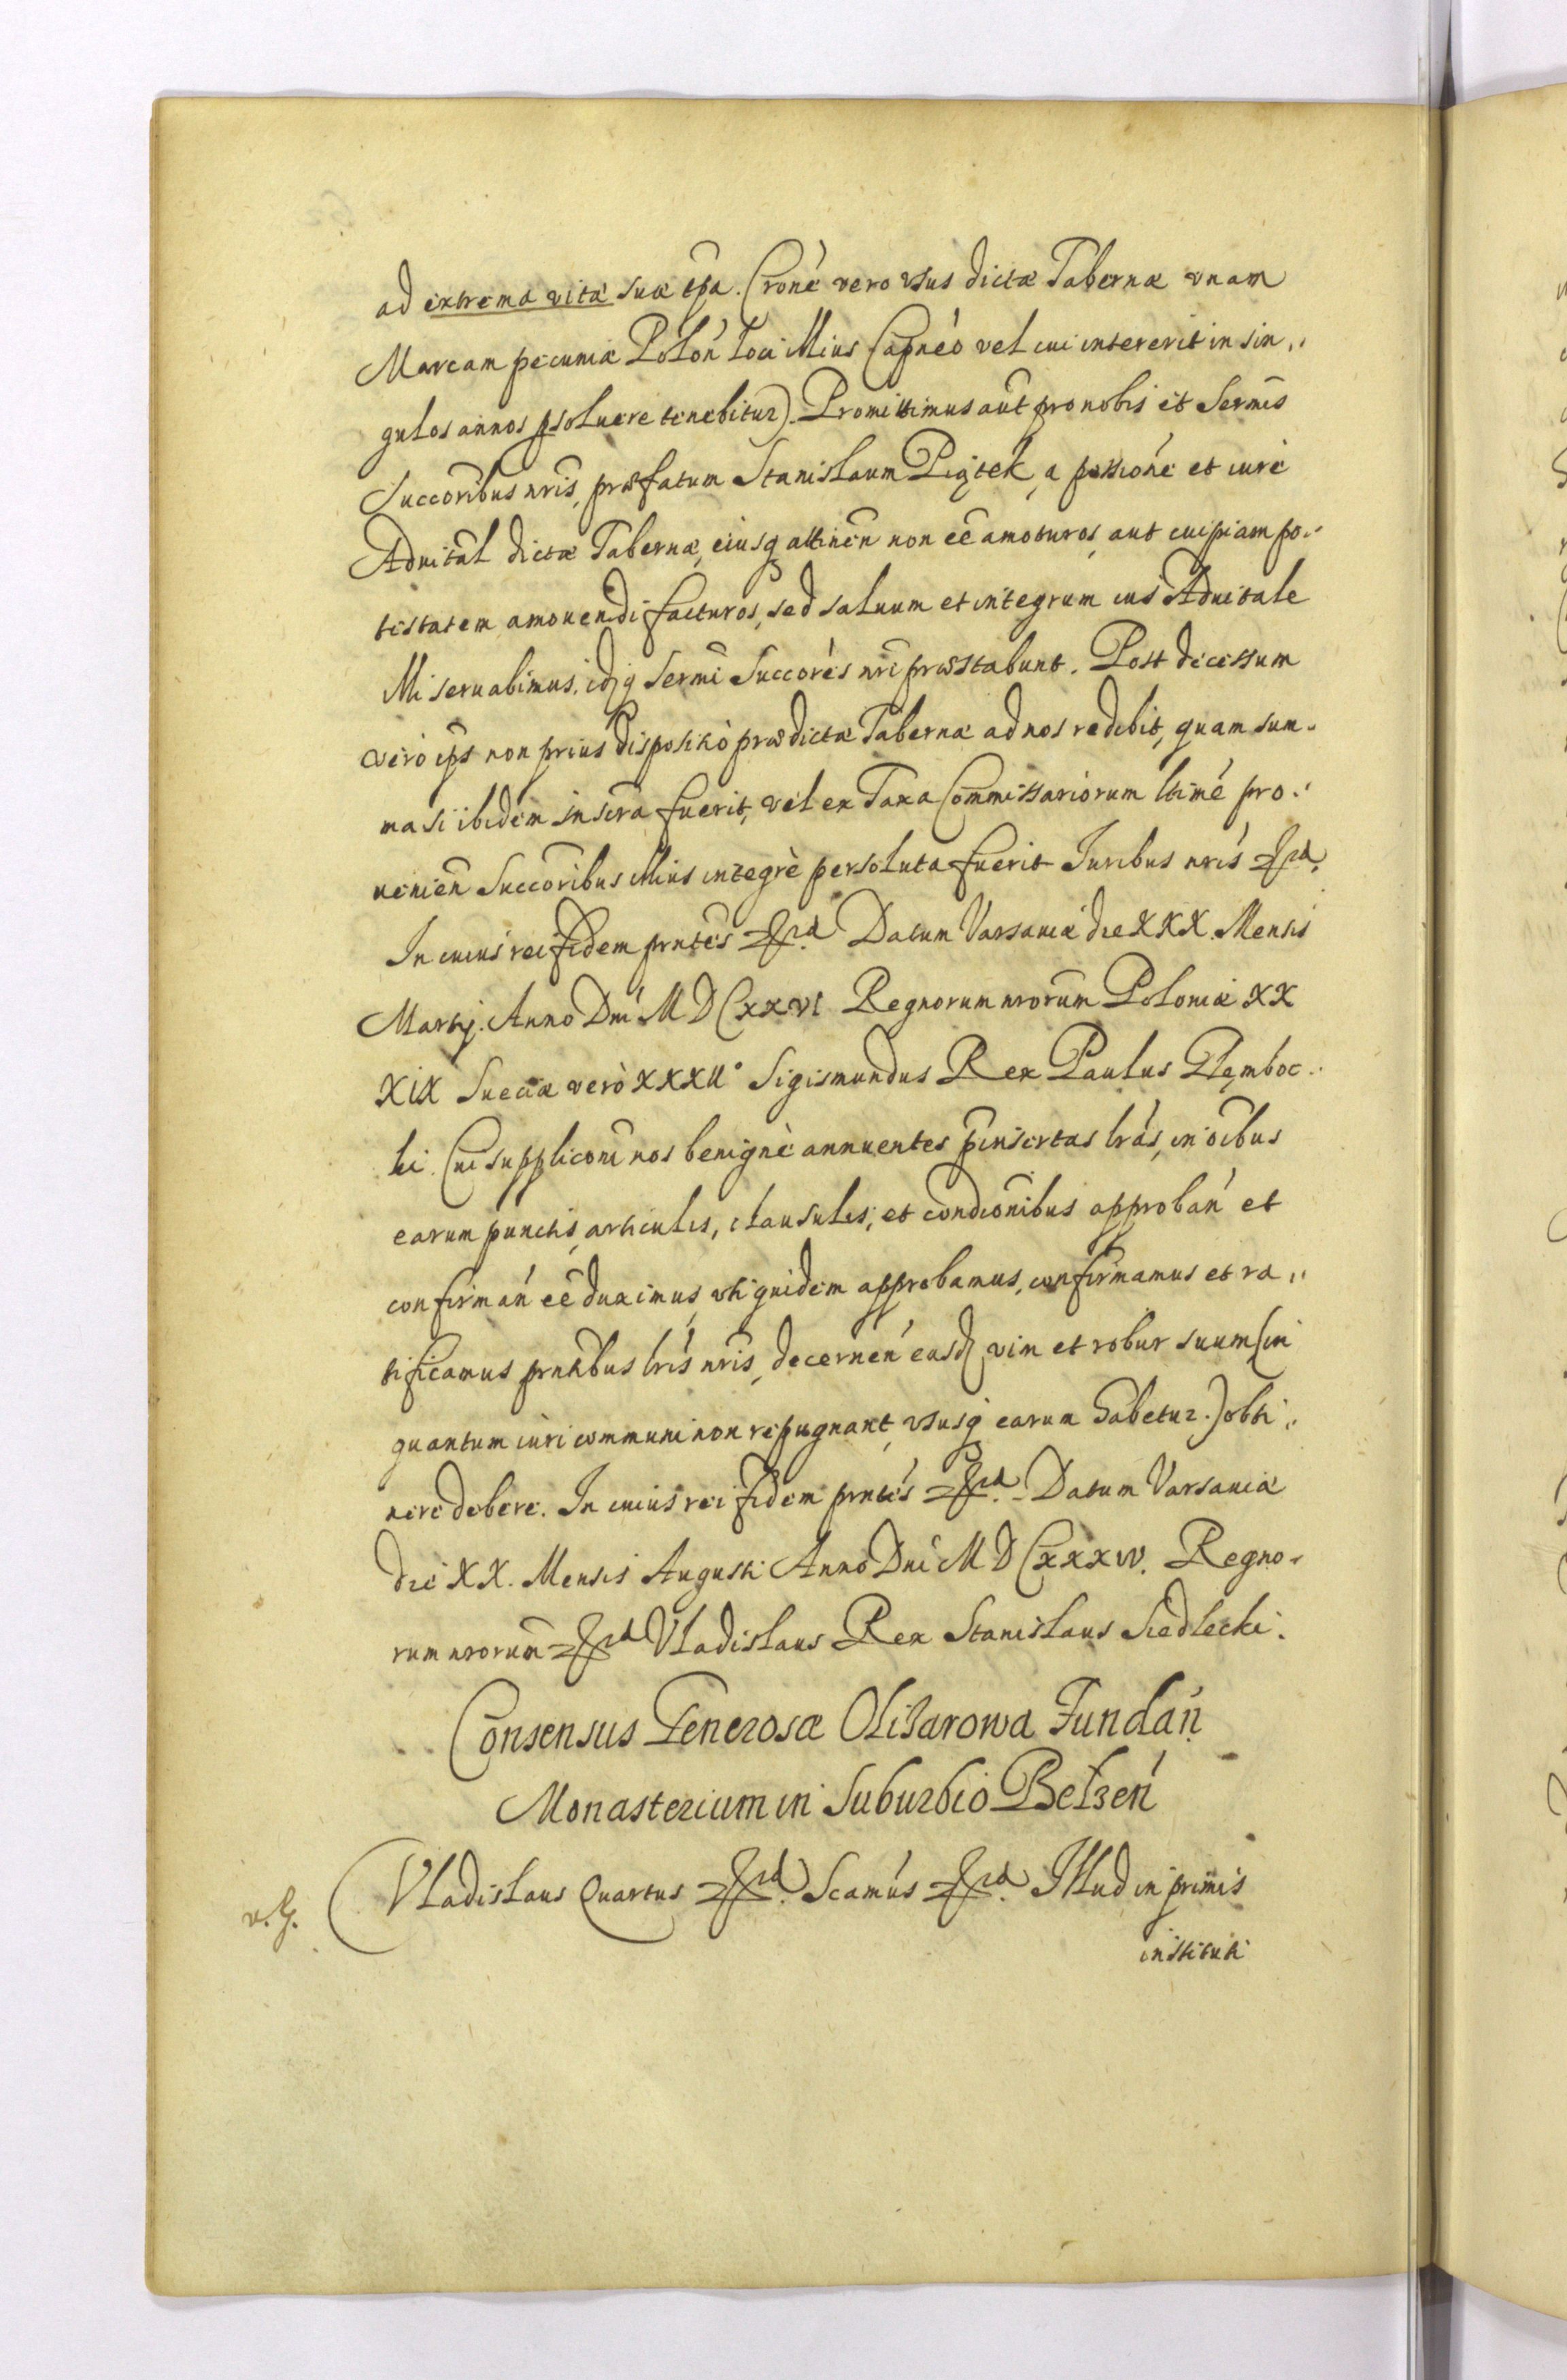 ad extrema vitæ suæ tpa. (rone vero usus dictæ Tabernæ unam
Marcam pecuniæ Polon loci illius Capneo vel cui intererit in sin„
gulos annos psoluere tenebitur). Promittimus aut pro nobis et Sermis
Succoribus nris, præfatum Stanislaum Piątek, a possione et iure
Aduital dictæ Tabernæ, eiusq attinen non ee amoturos, aut cuipiam po„
testatem amouendi facturos, sed saluum et integrum ius Aduitale
illi seruabimus, idq Sermi Succores nri præstabunt. Post decessum
vero ips non prius dispositio prædictæ Tabernæ ad nos redibit, quam sum„
ma si ibidem inscra fuerit, vel ex Taxa Commissariorum ltime pro„
uenien Succoribus illius integrè persoluta fuerit Juribus nris
In cuius rei fidem pntes Datum Varsauiæ die XXX. Mensis
Martij. Anno Dni MDCxxvi Regnorum nrorum Poloniæ XX
XIX Sueciæ verò XXXII° Sigismundus Rex Paulus Plęmboc„
ki. Cui suppliconi nos benignè annuentes pinsertas lras, in oibus
earum punctis, articulis, clausulis, et condionibus approban et
confirman ee duximus, uti quidem approbamus, confirmamus et ra„
tificamus pntibus lris nris, decernen easd vim et robur suum (in
quantum iuri communi non repugnant, ususq earum habetur.) obti„
nere debere. In cuius rei fidem pntes Datum Varsauiæ
die XX. Mensis Augusti Anno Dni MDCxxxiv. Regno„
rum nrorum Vladislaus Rex Stanislaus Siedlecki.
Consensus Generosæ Olizarowa Fundan
Monasterium in Suburbio Bełzen
v. g. Vladislaus Quartus Scamus Illud in primis
instituti